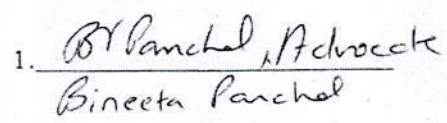 1. BV Panchal, Advocate
Bineeta Panchal